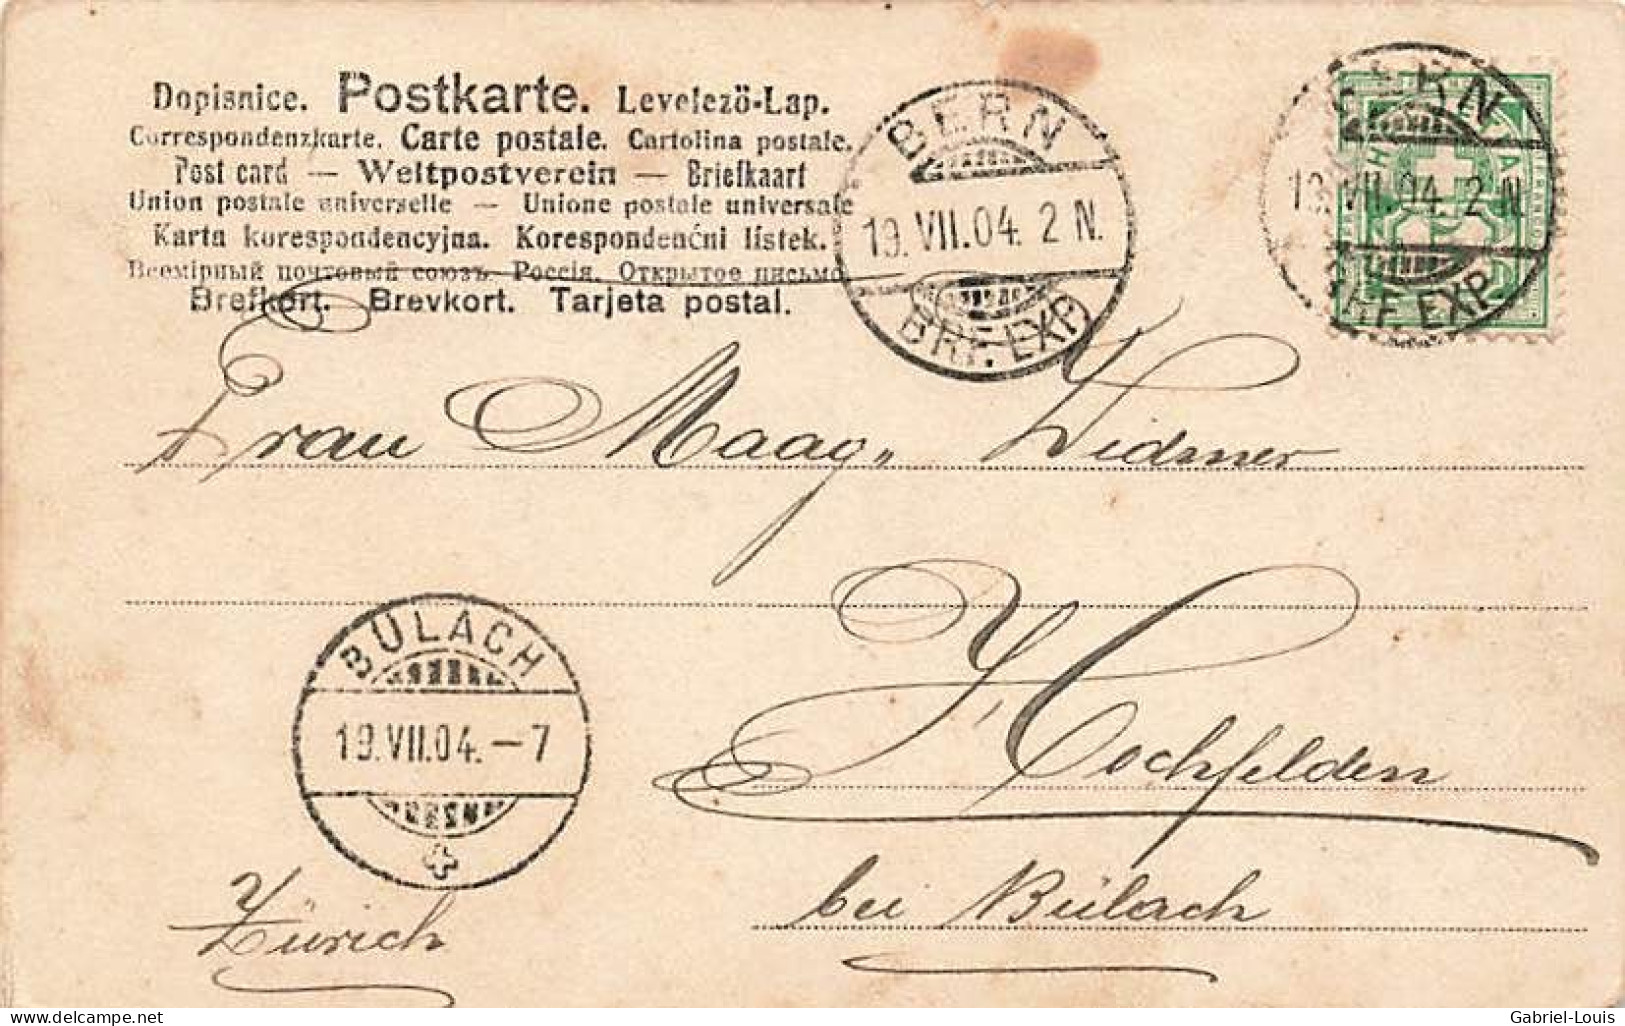 Dopisnice. Postkarte. Levelező-Lap.
Correspondenzkarte. Carte postale. Cartolina postale.
Post card — Weltpostverein — Briefkaart
Union postale universelle — Unione postale universale
Karta korespondencyjna. Korespondenčni lístek.
Всемірный почтовый союзъ. Россія. Открытое письмо
Brefkort. Brevkort. Tarjeta postal.
BERN
19. VII. 04. 2 N.
BRF. EXP.
BERN
19. VII. 04. 2 N.
BRF. EXP.
Frau Maag, Widmer
Hochfelden
bei Bülach
Zürich
BÜLACH
19. VII. 04. – 7
delcampe.net
Gabriel-Louis